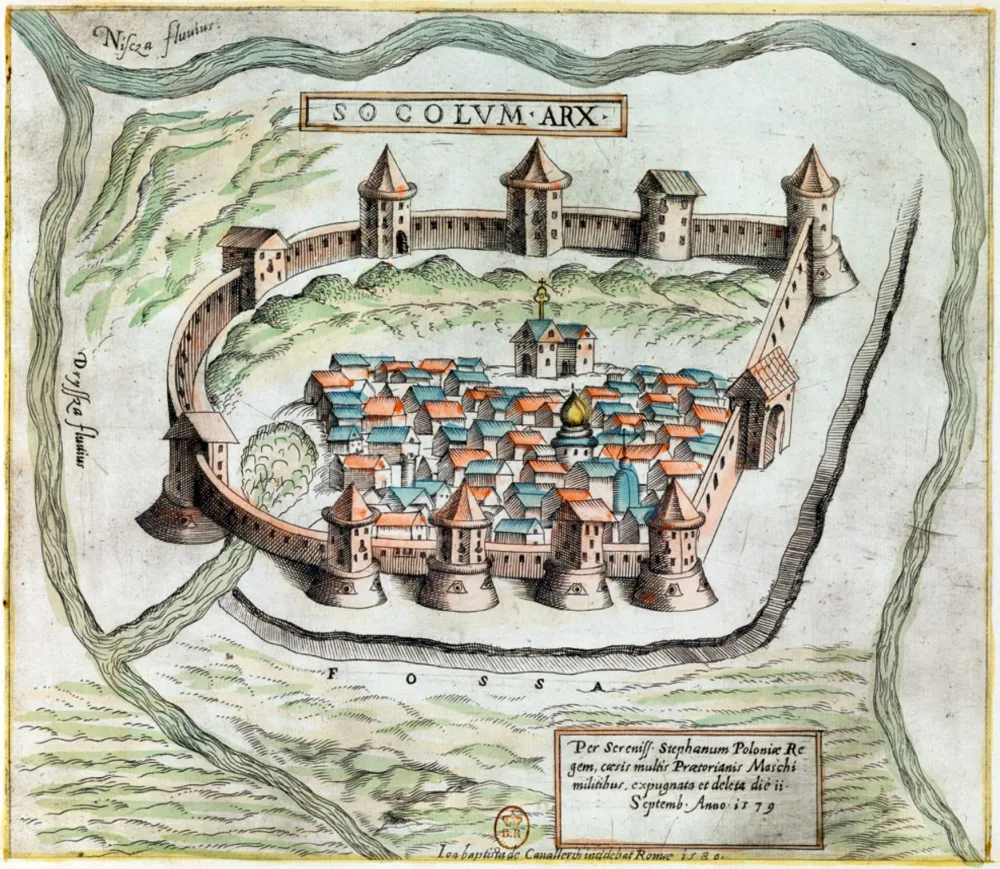 Niſcza fluuius.
SOCOLVM · ARX ·
Dryſſza fluuius
FOSSA
Per Sereniſſ. Stephanum Poloniæ Re
gem, cæsis multis Prætorianis Moschi
militibus, expugnata et deleta die ii ·
Septemb · Anno · 1579
B.R.
Ioa baptista de Cauallerÿs incidebat Romæ 1580.